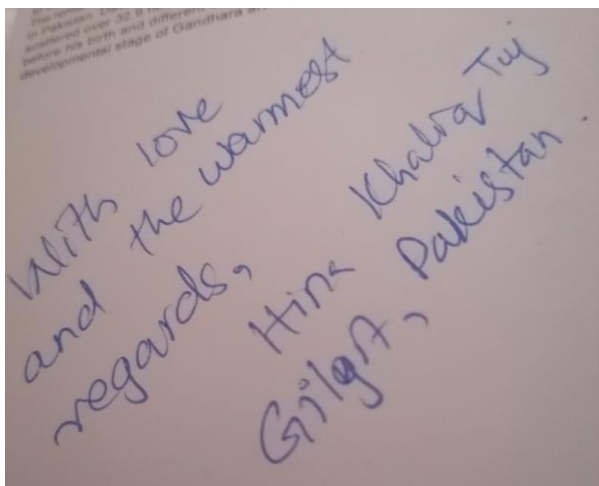 in Pakistan.
scattered over 32.
before his birth and different
developmental stage of Gandhara
With love
and the warmest
regards,
Hina Khaliq Tuj
Gilgit, Pakistan.